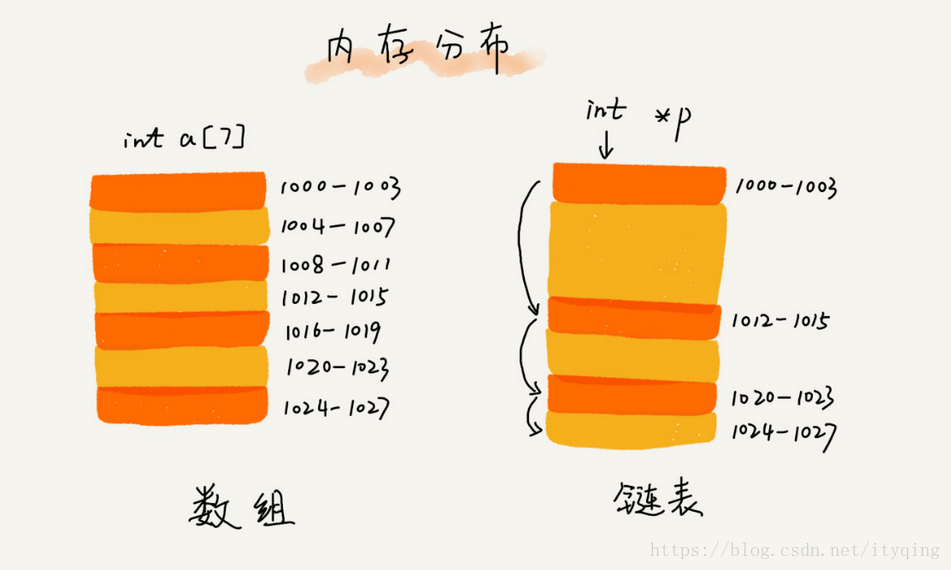 内存分布
int a[7]
1000-1003
1004-1007
1008-1011
1012-1015
1016-1019
1020-1023
1024-1027
数组
int *p
1000-1003
1012-1015
1020-1023
1024-1027
链表
https://blog.csdn.net/ityqing